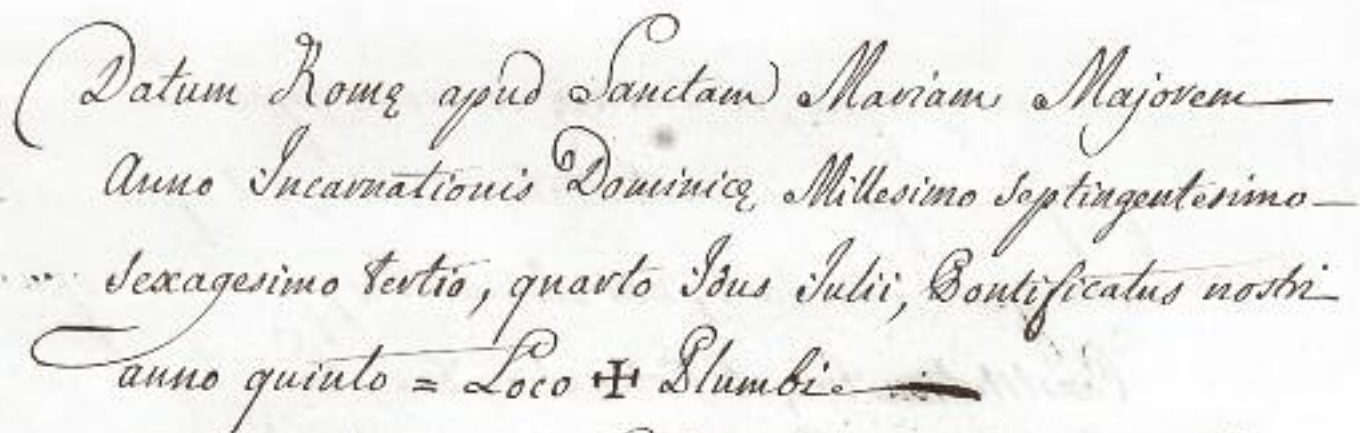 Datum Romę apud Sanctam Mariam Majorem
Anno Incarnationis Dominicę Millesimo Septingentesimo
Sexagesimo tertio, quarto Idus Julii, Pontificatus nostri
anno quinto = Loco ✠ Plumbi